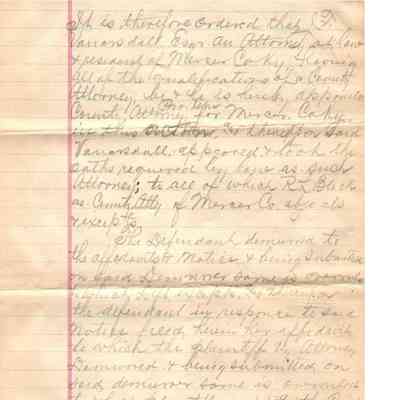 It is therefore ordered that F.
Vanarsdall Esqr. an Attorney at Law
& resident of Mercer Co Ky, Having
all of the qualifications of a County
Attorney be & he is hereby appointed
County Attorney Pro Tem for Mercer Co Ky
in this action, & thereupon said
Vanarsdall, appeared & took the
oaths required by law as such
Attorney; to all of which R L Black
as County Atty of Mercer Co objects
& excepts.
The Defendant demured to
the Notice & being submitted
on said Demurrer same is
the defendant in response to said
notice filed herein her affidavit
to which the plaintiff by Attorney
Demurred & being submitted on
said demurrer same is